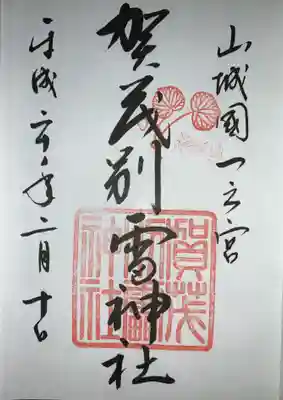 山城國一之宮
賀茂別雷神社
賀茂
別雷
神社
平成 年二月十日